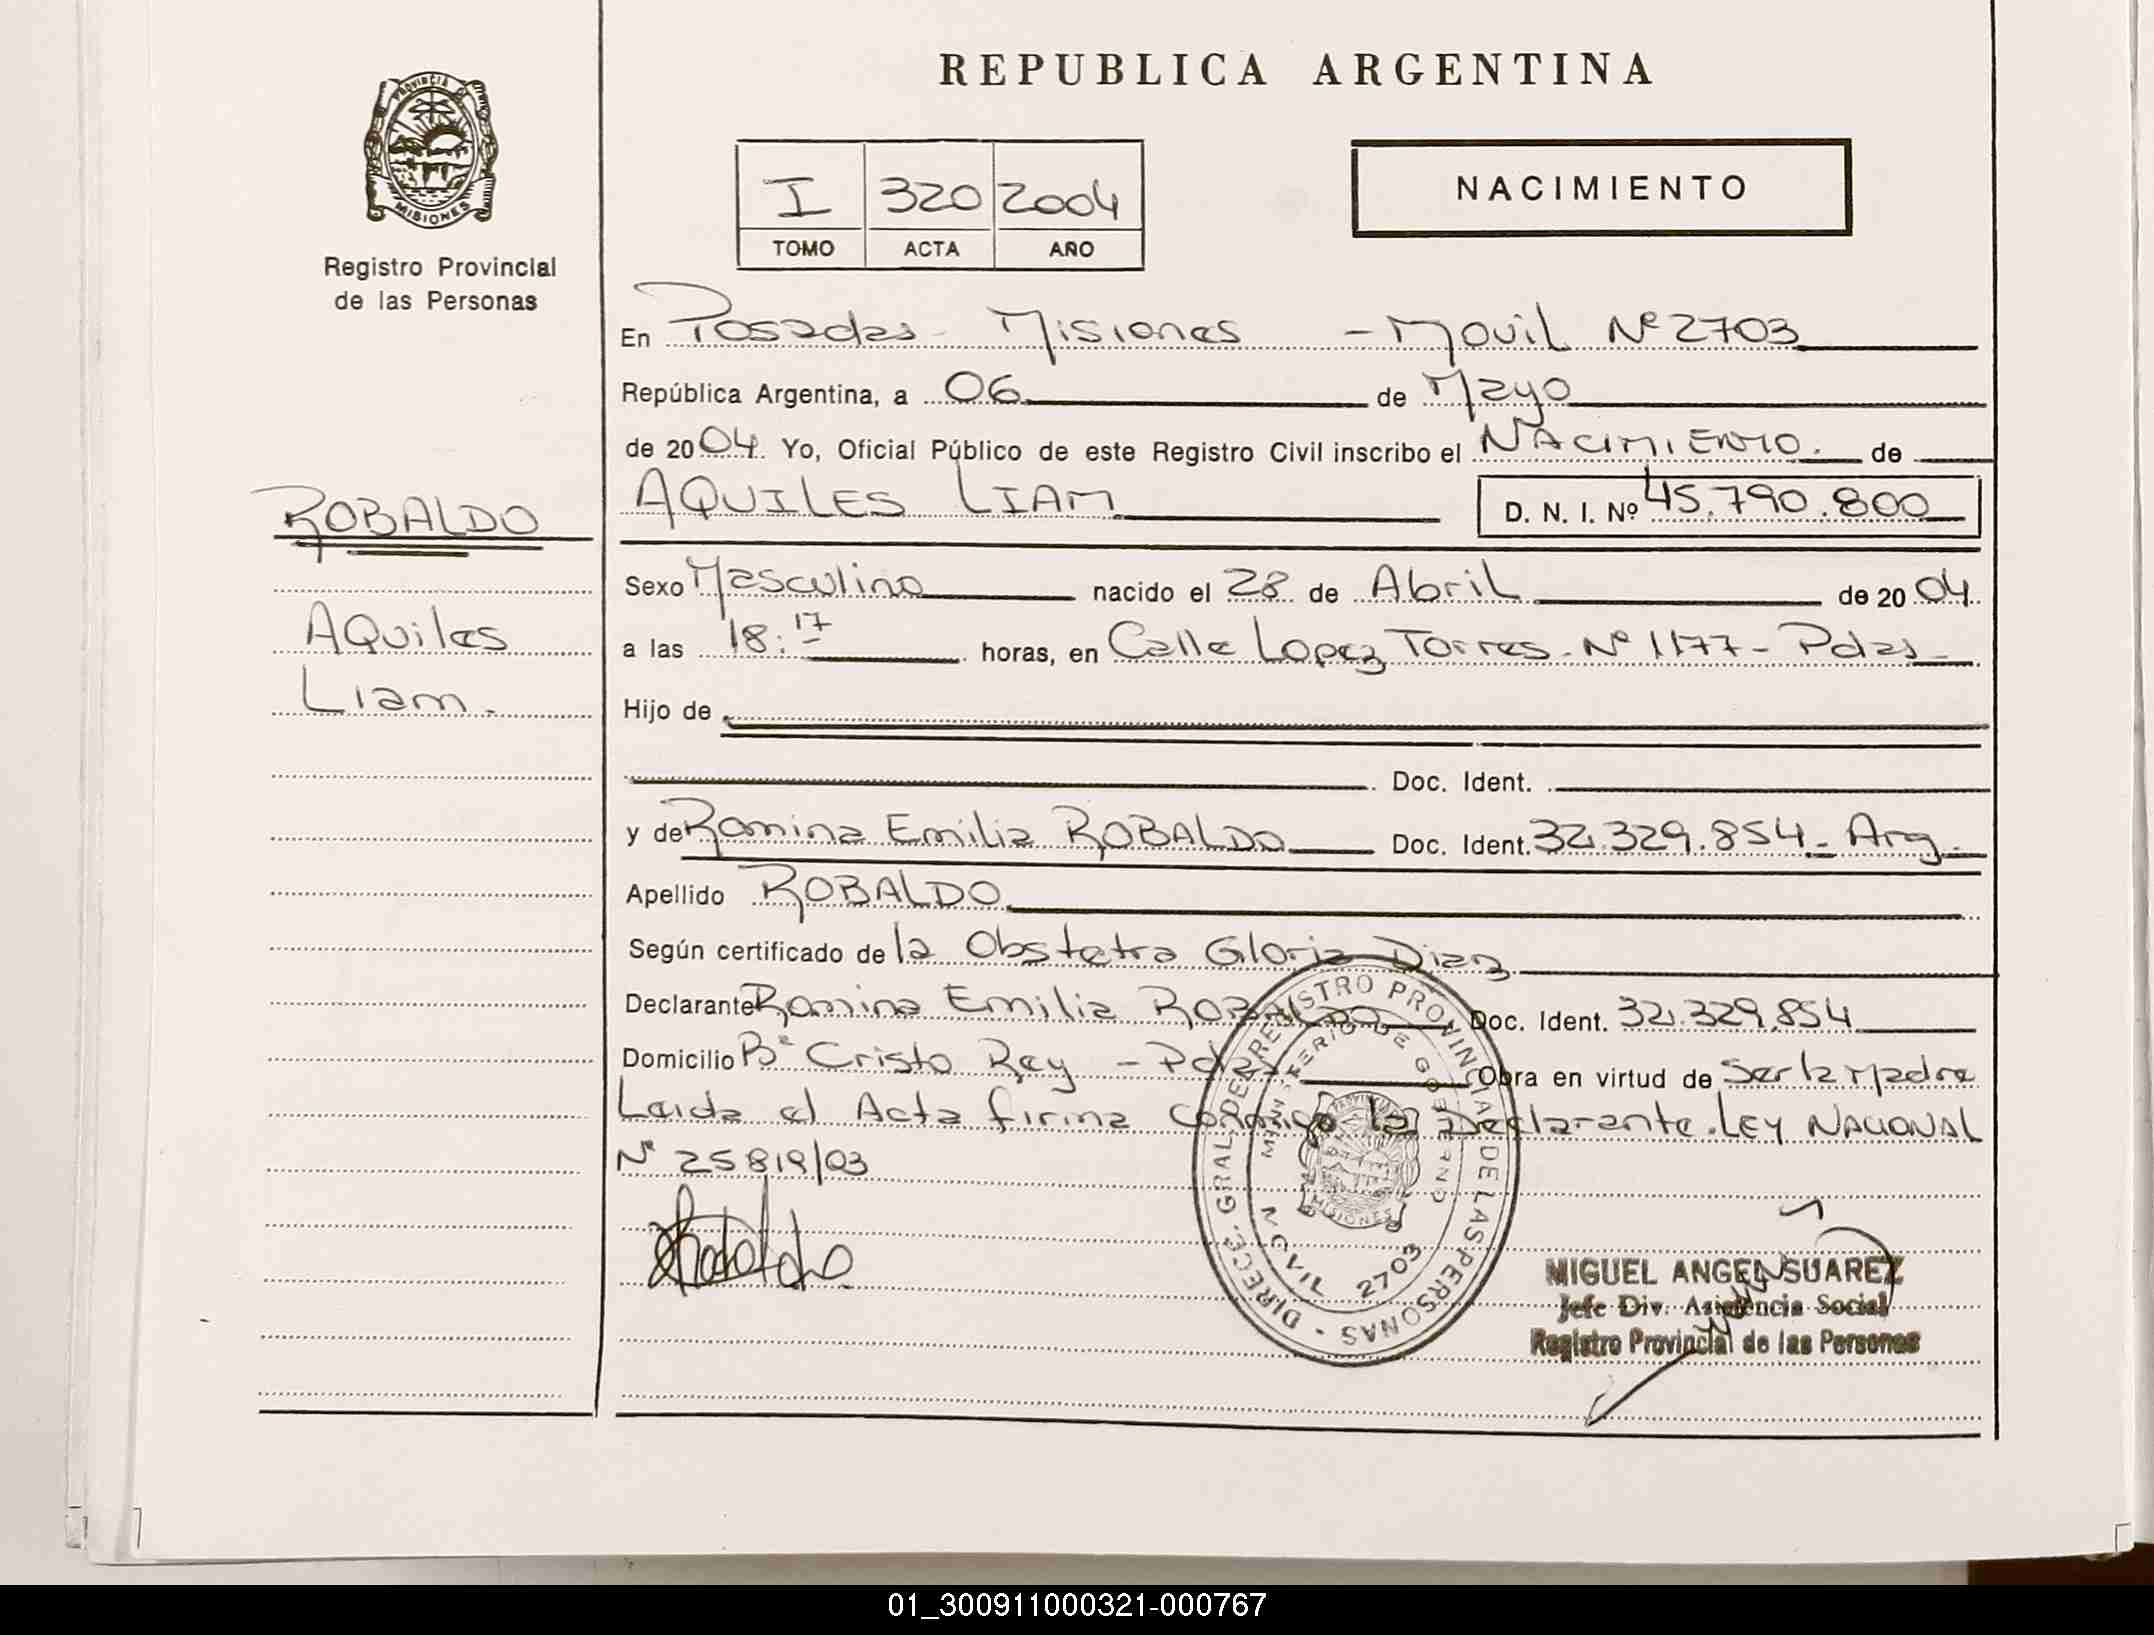 REPUBLICA ARGENTINA
PROVINCIA DE
MISIONES
Registro Provincial
de las Personas
I 320 2004
TOMO ACTA AÑO
NACIMIENTO
En Posadas - Misiones - Movil Nº 2703
República Argentina, a 06 de Mayo
de 2004. Yo, Oficial Público de este Registro Civil inscribo el NACIMIENTO. de
ROBALDO
AQUILES LIAM
D. N. I. Nº 45.790.800
Sexo Masculino nacido el 28 de Abril de 2004.
Aquiles
a las 18:17 horas, en Calle Lopez Torres. Nº 1177 - Pdas -
Liam.
Hijo de
Doc. Ident.
y de Romina Emilia ROBALDO Doc. Ident. 32.329.854 - Arg.
Apellido ROBALDO
Según certificado de la Obstetra Gloria Diaz
Declarante Romina Emilia ROBALDO Doc. Ident. 32.329.854
Domicilio Bº Cristo Rey - Pdas Obra en virtud de Ser la Madre
Leida el Acta firma conmigo la Declarante. LEY NACIONAL
Nº 25819/03
Robaldo
DIRECC. GRAL. DE REGISTRO PROVINCIAL DE LAS PERSONAS -
MINISTERIO DE GOBIERNO
MISIONES
MOVIL 2703
MIGUEL ANGEL SUAREZ
Jefe Div. Asistencia Social
Registro Provincial de las Personas
01_300911000321-000767